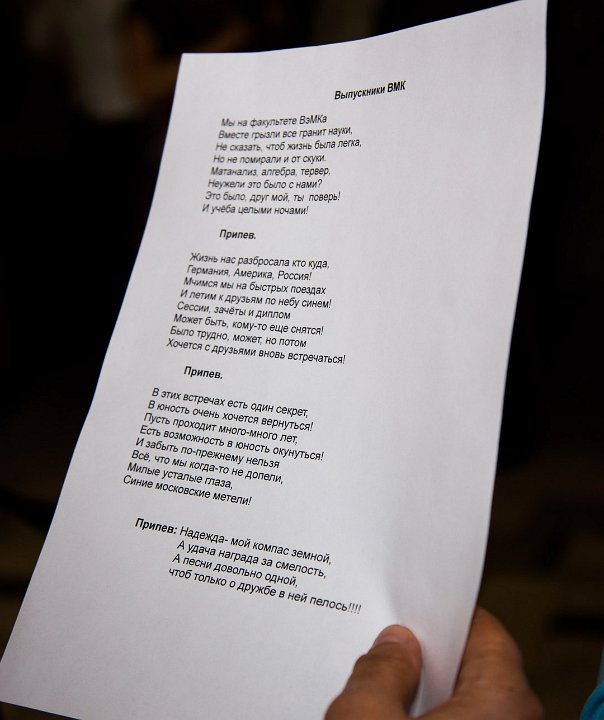 Выпускники ВМК
Мы на факультете ВэМКа
Вместе грызли все гранит науки,
Не сказать, чтоб жизнь была легка,
Но не помирали и от скуки.
Матанализ, алгебра, тервер,
Неужели это было с нами?
Это было, друг мой, ты поверь!
И учёба целыми ночами!
Припев.
Жизнь нас разбросала кто куда,
Германия, Америка, Россия!
Мчимся мы на быстрых поездах
И летим к друзьям по небу синем!
Сессии, зачёты и диплом
Может быть, кому-то еще снятся!
Было трудно, может, но потом
Хочется с друзьями вновь встречаться!
Припев.
В этих встречах есть один секрет,
В юность очень хочется вернуться!
Пусть проходит много-много лет,
Есть возможность в юность окунуться!
И забыть по-прежнему нельзя
Всё, что мы когда-то не допели,
Милые усталые глаза,
Синие московские метели!
Припев: Надежда- мой компас земной,
А удача награда за смелость,
А песни довольно одной,
чтоб только о дружбе в ней пелось!!!!